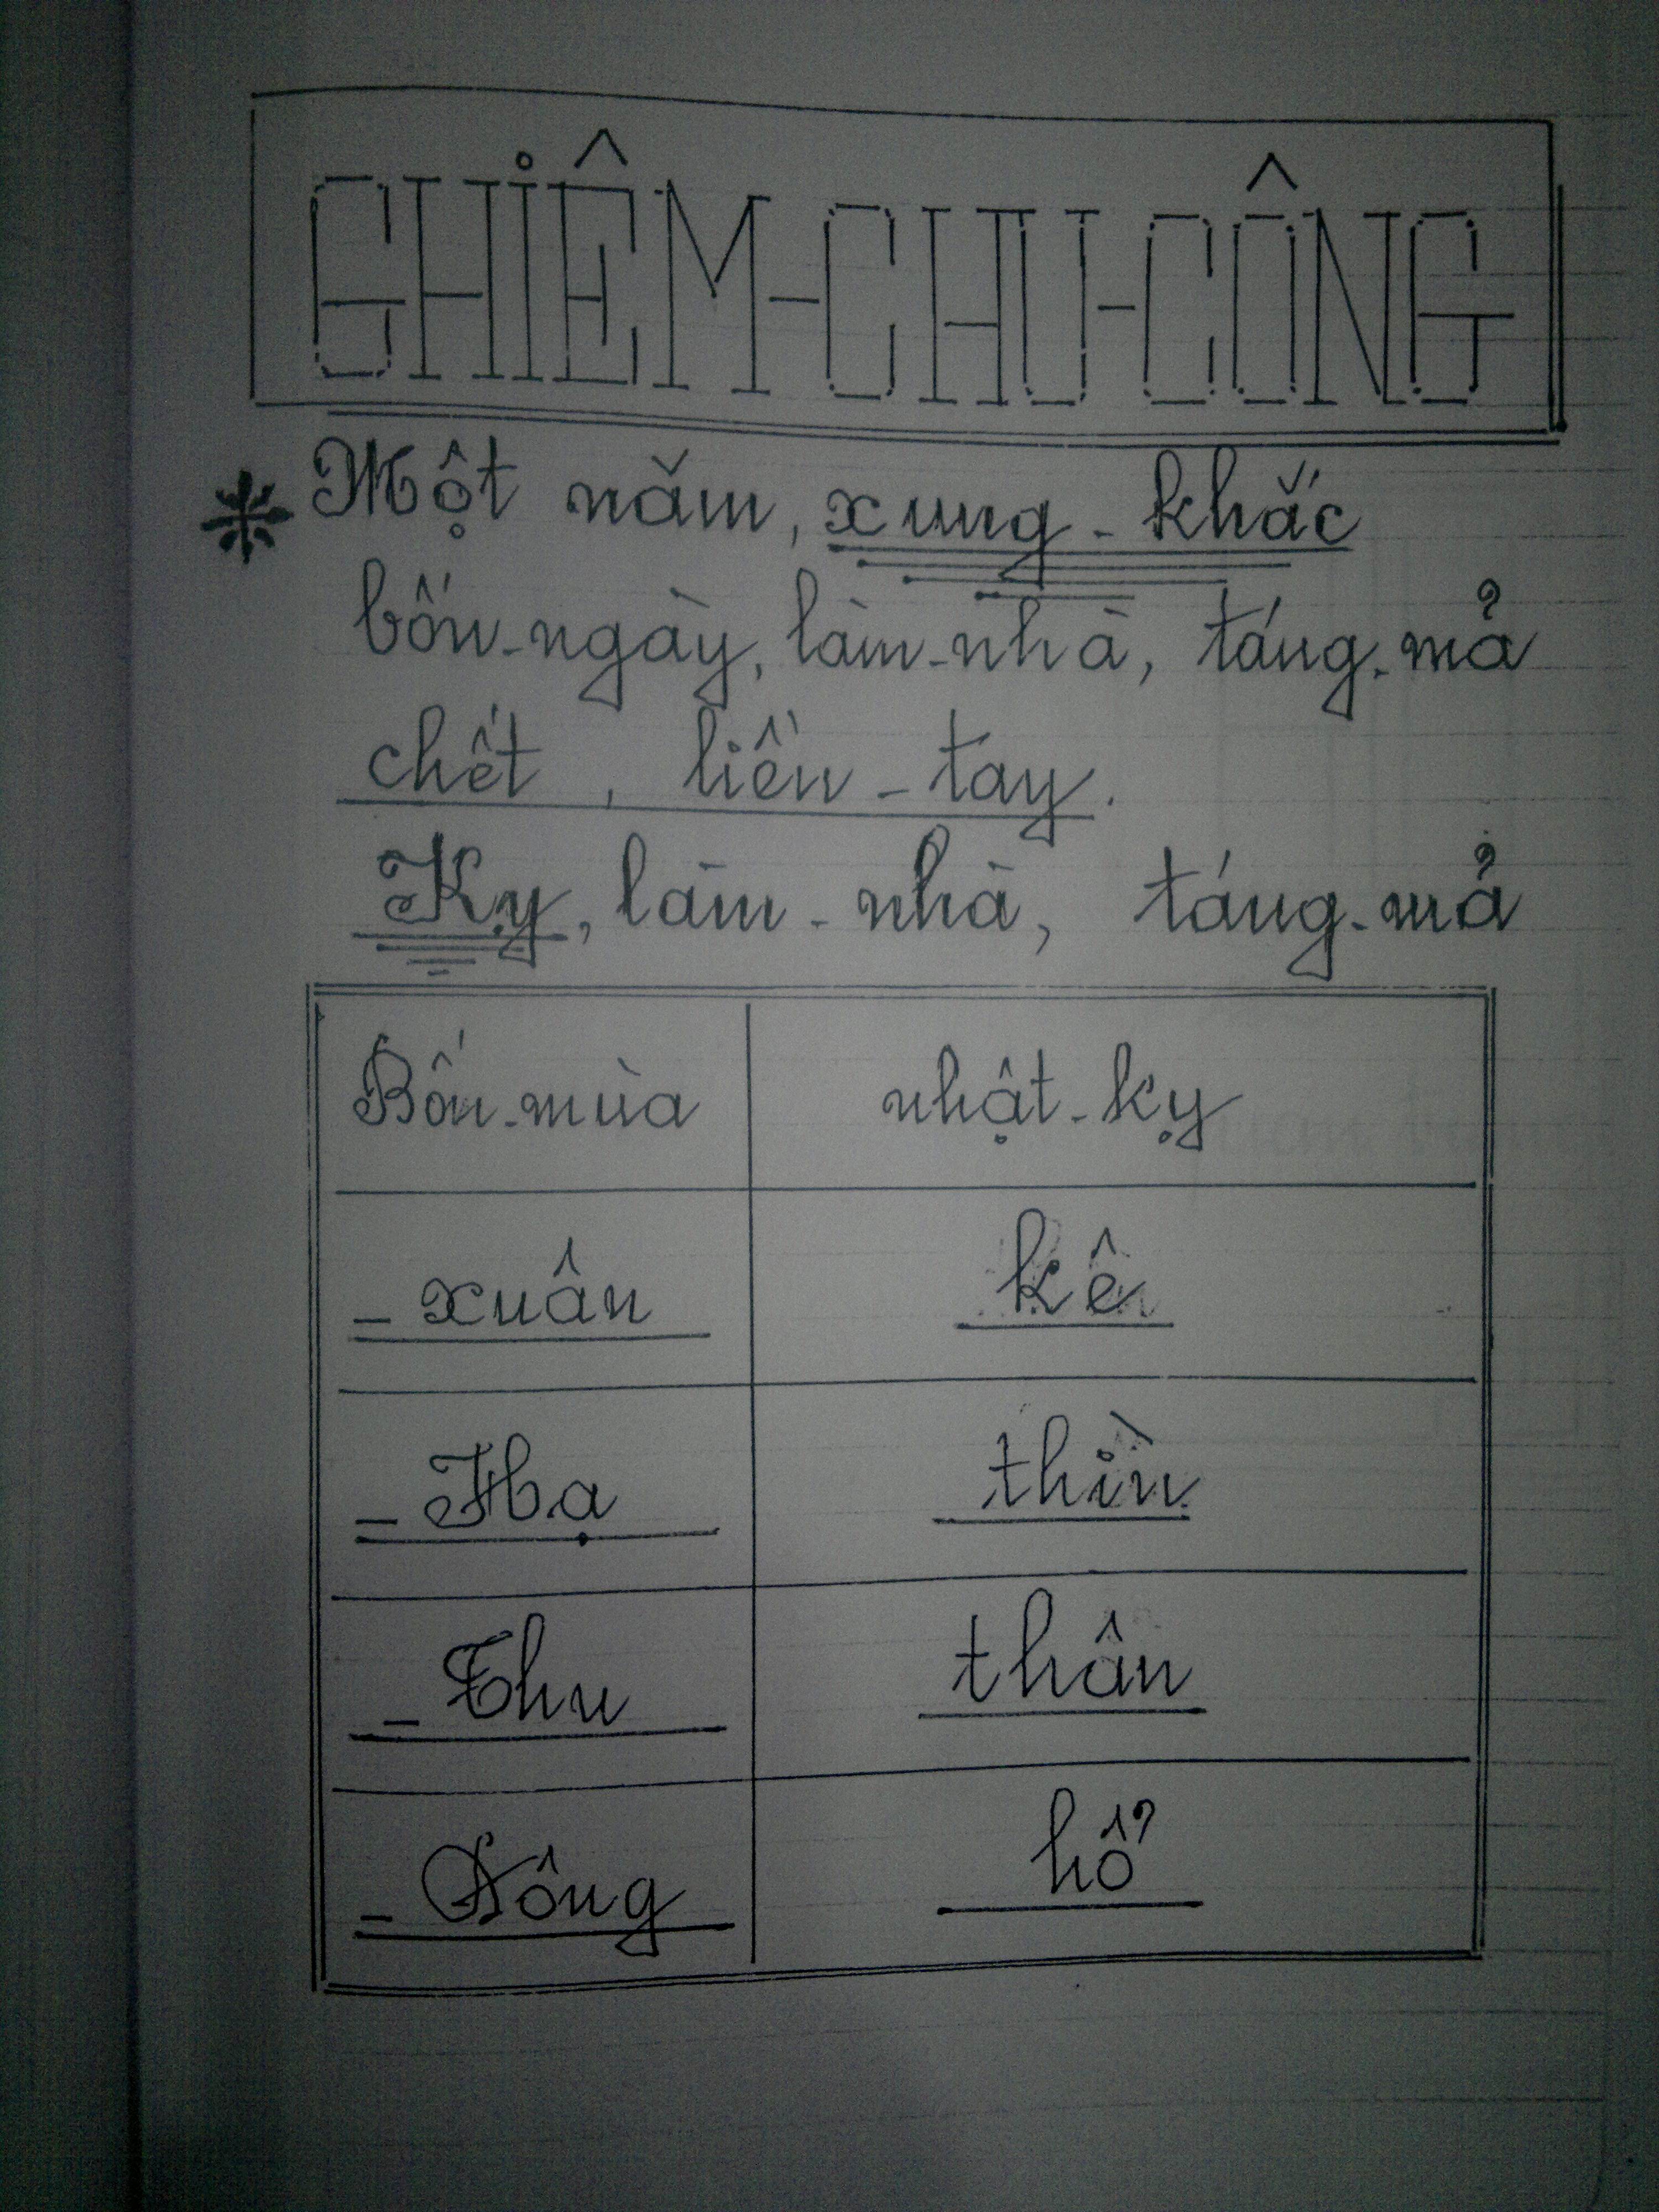 CHIÊM-CHU-CÔNG
Một năm, xung-khắc
bốn-ngày, làm-nhà, táng-mả
chết, liền-tay.
Kỵ, làm-nhà, táng-mả
Bốn-mùa nhật-kỵ
- xuân kê
- Hạ thìn
- Thu thân
- Đông hổ